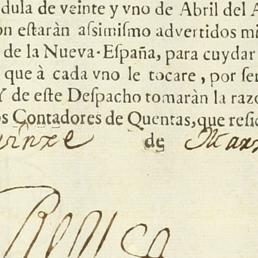 dula de veinte y vno de Abril del A
n estaràn assimismo advertidos mi
de la Nueva-España, para cuydar
que à cada vno le tocare, por ser
Y de este Despacho tomaràn la razo
os Contadores de Quentas, que resi
uinze de Mar